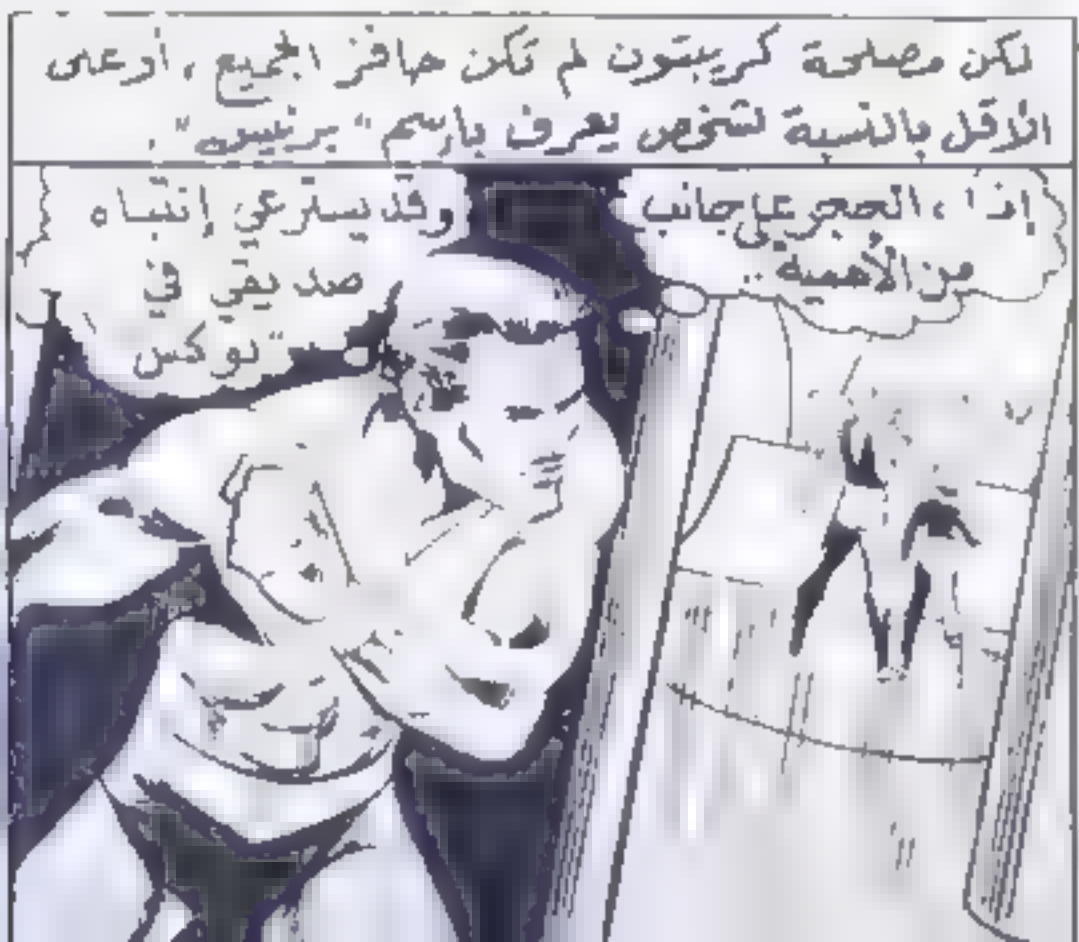 لكن مصلحة كريبتون لم تكن حافز الجميع ، أو على
الاقل بالنسبة لشخص يعرف بإسم " برنيس " .
إذا ، الحجر على جانب
من الأهمية ..
وقد يسترعي إنتباه
صديقي في
"بوكس